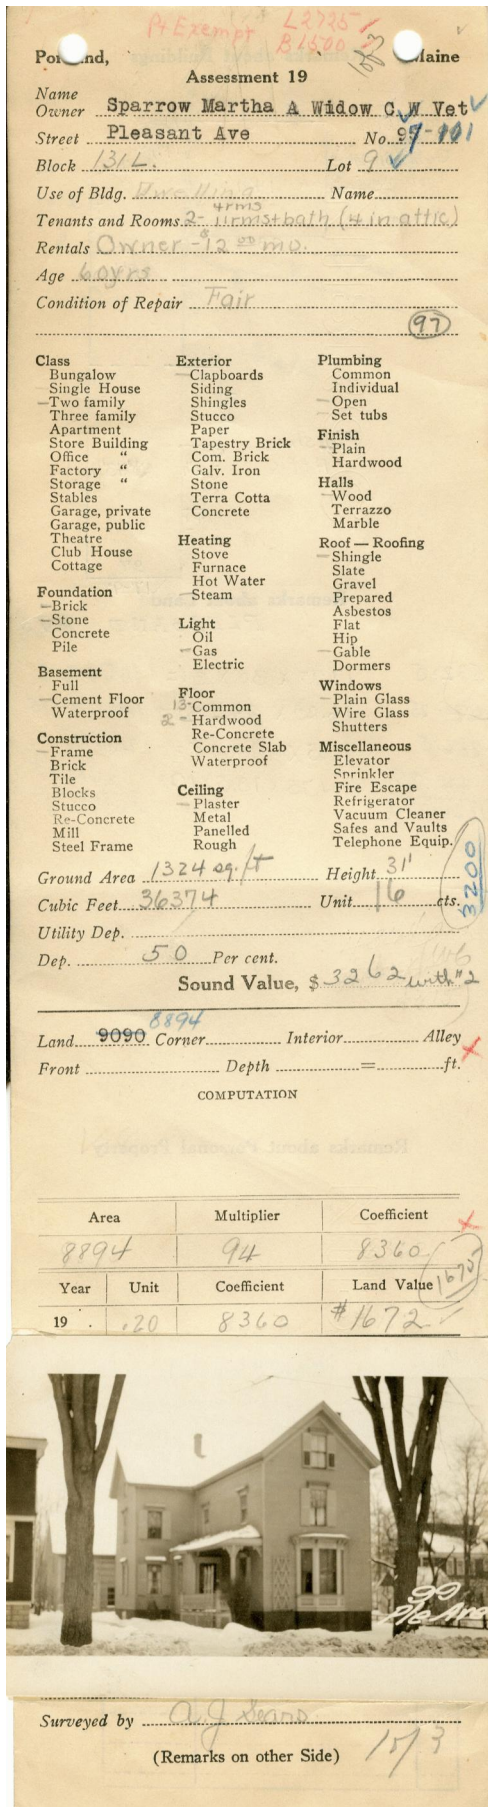 Pt Exempt L2725
B1500
Portland, Maine
Assessment 19
Name
Owner Sparrow Martha A Widow C W Vet
Street Pleasant Ave No. 97-101
Block 131 L. Lot 9
Use of Bldg. Dwelling Name
4 rms
Tenants and Rooms 2- 11rms+bath (4 in attic)
Rentals Owner - $12 00 mo.
Age 60yrs
Condition of Repair Fair
97
Class
Bungalow
Single House
Two family
Three family
Apartment
Store Building
Office "
Factory "
Storage "
Stables
Garage, private
Garage, public
Theatre
Club House
Cottage
Foundation
Brick
Stone
Concrete
Pile
Basement
Full
Cement Floor
Waterproof
Construction
Frame
Brick
Tile
Blocks
Stucco
Re-Concrete
Mill
Steel Frame
Exterior
Clapboards
Siding
Shingles
Stucco
Paper
Tapestry Brick
Com. Brick
Galv. Iron
Stone
Terra Cotta
Concrete
Heating
Stove
Furnace
Hot Water
Steam
Light
Oil
Gas
Electric
Floor
13- Common
2 - Hardwood
Re-Concrete
Concrete Slab
Waterproof
Ceiling
Plaster
Metal
Panelled
Rough
Plumbing
Common
Individual
Open
Set tubs
Finish
Plain
Hardwood
Halls
Wood
Terrazzo
Marble
Roof — Roofing
Shingle
Slate
Gravel
Prepared
Asbestos
Flat
Hip
Gable
Dormers
Windows
Plain Glass
Wire Glass
Shutters
Miscellaneous
Elevator
Sprinkler
Fire Escape
Refrigerator
Vacuum Cleaner
Safes and Vaults
Telephone Equip.
3200
Ground Area 1324 sq. ft Height 31'
Cubic Feet 36374 Unit 16 cts.
Utility Dep.
Dep. 50 Per cent.
Sound Value, $ 3262 with #2
8894
Land 9090 Corner Interior Alley
Front Depth = ft.
COMPUTATION
Area Multiplier Coefficient
8894 94 8360
Year Unit Coefficient Land Value 1675
19 . .20 8360 $1672
99
Ple Ave
Surveyed by A. J. Sears
(Remarks on other Side) 10/3